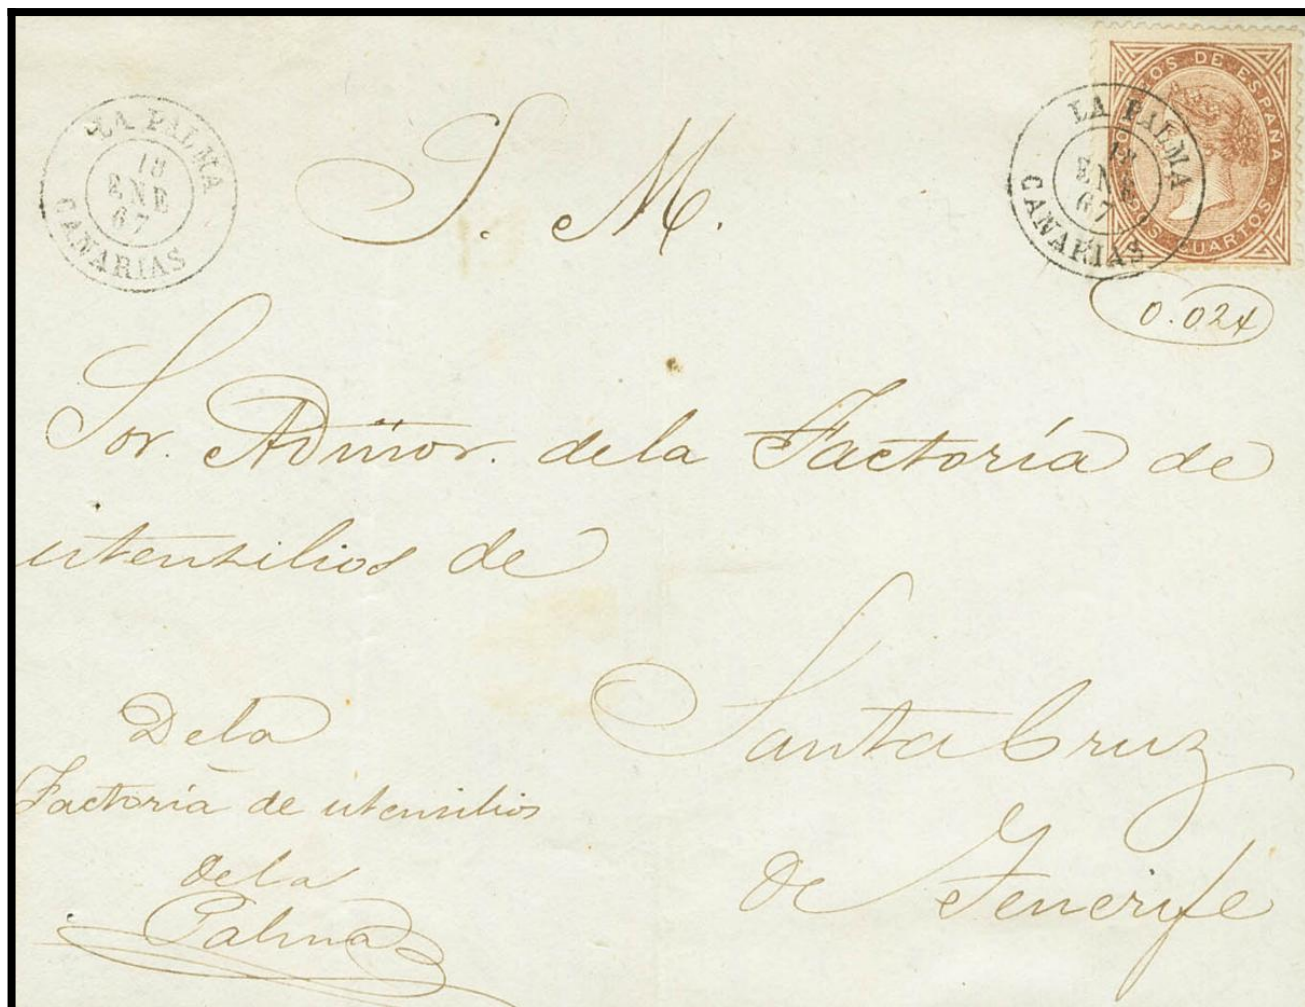 LA PALMA
18
ENE
67
CANARIAS
S. M.
OS DE ESPAÑA
LA PALMA
18
ENE
67
CANARIAS
CUARTOS
0.024
Sor. Admor. dela Factoría de
utensilios de
Santa Cruz
de Tenerife
Dela
Factoría de utensilios
dela
Palma